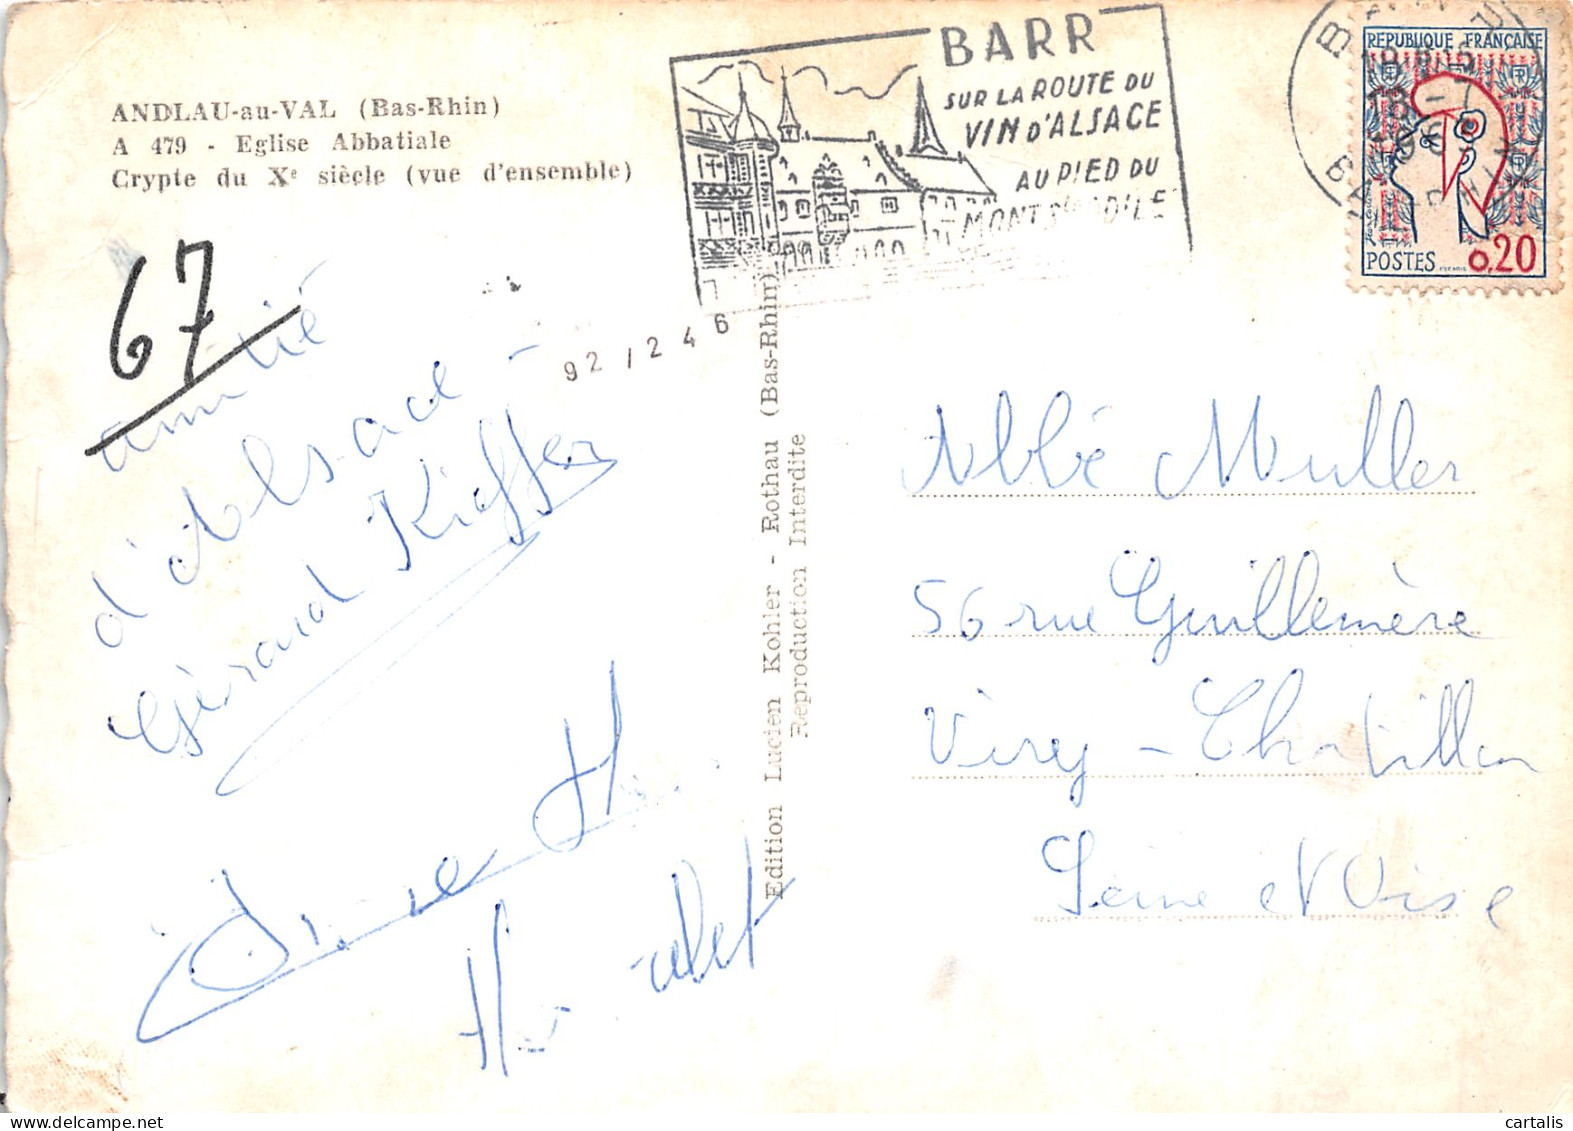 ANDLAU-au-VAL (Bas-Rhin)
A 479 - Eglise Abbatiale
Crypte du Xe siècle (vue d'ensemble)
BARR
SUR LA ROUTE DU
VIN D'ALSACE
AU PIED DU
MONT Ste ODILE
REPUBLIQUE FRANÇAISE
POSTES 0,20
67
92 / 246
amitié
d'Alsace -
Gérard Kieffer
Edition Lucien Kohler - Rothau (Bas-Rhin)
Reproduction Interdite
Abbé Muller
56 rue Guillemère
Viry - Chatillon
Seine et Oise
cartalis